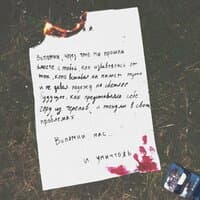 Вспомни, через что мы прошли
вместе с тобой, как избавлялись от
тех, кто вставал на нашем пути
и не давал надежду на светлое
будущее, как представляли себе
и тонули в своих
проблемах
Вспомни нас...
И уничтожь